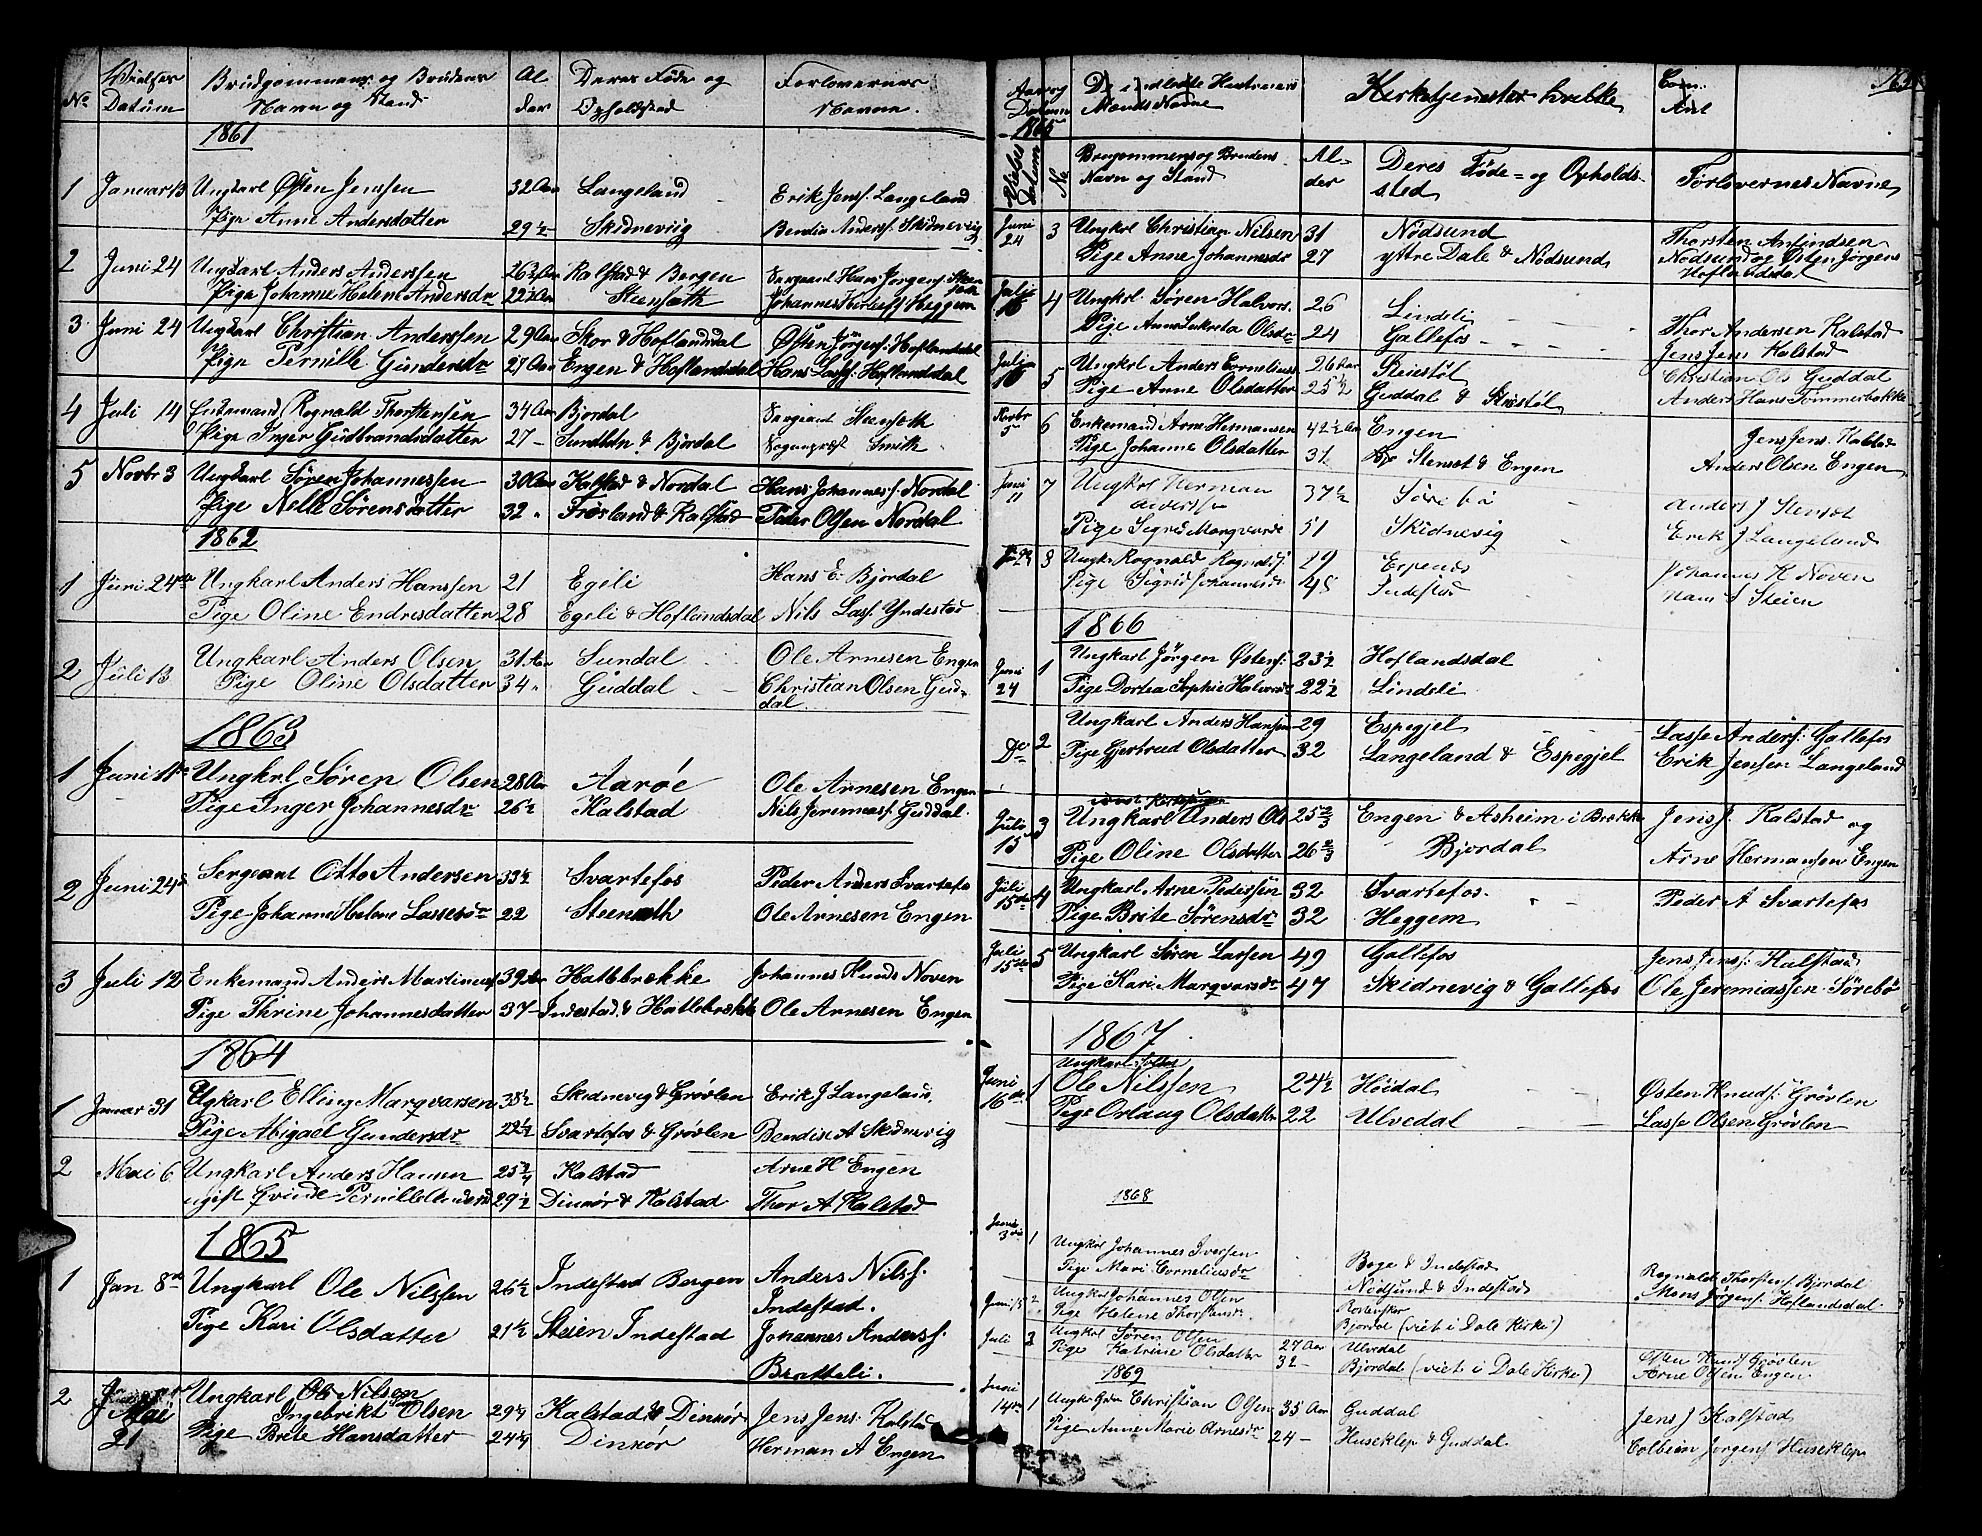 No Vielses Datum Brudgommens og Brudens Navn og Stand Alder Deres Føde og Opholdsted Forlovernes Navne.
1861
1 Januar 13 Ungkarl Østen Jenssen 32 Aar Langeland Erik Jens: Langeland
Pige Anne Andersdatter 29½ Skidnevig Bendix Anders: Skidnevig
2 Juni 24 Ungkarl Anders Anderssen 26½ Aar Kalstad & Bergen Sergeant Hans Jørgens:
Pige Johanne Helene Andersdr 22½ Aar Steensæth Johannes Heggem
3 Juni 24 Ungkarl Christian Anderssen 29 Aar Skor & Hoflandsdal Østen Jørgens: Hoflandsdal
Pige Pernille Gundersdr 27 Aar Engen & Hoflandsdal Hans Lass: Hoflandsdal
4 Juli 14 Enkemand Rognald Thorstensen 34 Aar Bjordal Sergeant Steensæth
Pige Inger Gudbrandsdatter 27 & Bjordal Sogneprest Smith
5 Novbr 3 Ungkarl Søren Johannessen 30 Aar Kalstad & Nordal Hans Johanness: Nordal
Pige Nelle Sørensdatter 32 " Frøsland & Kalstad Peder Olsen Nordal
1862
1 Juni 24de Ungkarl Anders Hanssen 21 Egeli Hans E. Bjordal
Pige Oline Endresdatter 28 Egeli & Hoflandsdal Nils Lass: Yndestad
2 Juli 13 Ungkarl Anders Olsen 31 Aar Sundal Ole Arnesen Engen
Pige Oline Olsdatter 34 " Guddal Christian Olsen Gud-
dal
1863
1 Juni 11te Ungkrl Søren Olsen 28 Aar Aarøe Ole Arnesen Engen
Pige Inger Johannesdr 26½ Kalstad Nils Jeremias: Guddal
2 Juni 24de Sergeant Otto Andersen 33½ Svartefos Peder Anders Svartefos
Pige Johanne Helene Lassesdr 22 Steensæth Ole Arnesen Engen
3 Juli 12 Enkemand Anders Martinus: 39 Aar Hatlebrække Johannes Knuds Noven
Pige Thrine Johannesdatter 37 - Indestad & Hatlebrække Ole Arnesen Engen
1864
1 Januar 31 Ugkarl Elling Marqvarsen 38½ Skidnevig & Grøvlen Erik J Langeland.
Pige Abigael Gundersdr 22½ Svartefos & Grøvlen Bendix A Skidnevig
2 Mai 6 Ungkarl Anders Hansen 25¾ Kalstad Arne H Engen
ugift Qvinde Pernille 29½ Dinnør & Kalstad Thor A Kalstad
1865
1 Jan 8de Ungkarl Ole Nilssen 26½ Indestad Bergen Anders Nilss:
Indestad.
Pige Kari Olsdatter 21½ Steien Indestad Johannes Anderss:
Bratteli.
2 Januar Mai 21 Ungkarl Ole Nilsen
Ingebrikt Olsen 29¼ Kalstad & Dinnør Jens Jens: Kalstad
Pige Brite Hansdatter 24¼ Dinnør Herman A Engen
Aar og Datum De indledte Hustruers Mænds Navne Kirketjenester hvilke Com: Ant
1865
Vielses Datum No Brugommens og Brudens Navn og Stand Al-der Deres Føde- og Opholdssted Forlovernes Navne
Juni 24 3 Ungkrl Christian Nilsen 31 Nødsund Thorsten Anfindsen
Pige Anne Johannesdr 27 yttre Dale & Nødsund Nødsund og Østen Jørgens
Hoflandsdal
Juli 16 4 Ungkrl. Søren Halvors. 26 Lindeli Thor Andersen Kalstad
Pige Anne Lukretia Olsdr 24 Gallefos Jens Jens Kalstad
Juli 16 5 Ungkrl Anders Cornelius: 26 Aar Steistøl Christian Ols Guddal
Pige Anne Olsdatter 25½ Guddal & Steistøl Anders Hans Tømmerbakke
Novbr 5 6 Enkemand Arne Hermansen 42½ Aar Engen Jens Jens. Kalstad
Pige Johanne Olsdatter 31 Stensæt & Engen Anders Olsen Engen
Juni 11 7 Ungkrl Herman
Anderssen 37½ Sørebø Anders J Stensæt
Pige Sigrid Marqvards 51 Skidnevig Erik J Langeland
8 Ungkr Rognald Rognalds: 19 Espenes Johannes K Noven
Pige Sigrid Johannesdr 45 Indestad Hans S Steien
1866
Juni 24 1 Ungkarl Jørgen Østens: 23½ Hoflandsdal
Pige Dortea Sophie Halvorsdr 22½ Lindeli
Do 2 Ungkarl Anders Hansen 29 Espegjel Lasse Anders: Gallefos
Pige Gjertrud Olsdatter 32 Langeland & Espegjel Erik Jensen Langeland
Juli 15 3 Ungkarl Anders Ols 25⅔ Engen & Asheim i Brekke Jens J. Kalstad og
Pige Oline Olsdatter 26⅔ Bjordal Arne Hermansen Engen
Juli 15de 4 Ungkarl Arne Pedersen 32 Svartefos. Peder A Svartefos
Pige Brite Sørensdr 32 Heggem
Juli 15de 5 Ungkarl Søren Larsen 49 Gallefos Jens Jens: Kalstad
Pige Kari Marqvarsdr 47 Skidnevig & Gallefos Ole Jeremiassen Sørebø
1867
Ungkarl Soldat
Juni 16de 1 Ole Nilssen 24½ Høidal Østen Knuds: Grøvlen
Pige Orlaug Olsdatter 22 Ulvedal Lasse Olsen Grøvlen
1868
Juni 1 Ungkrl Johannes Iversen Boge & Indestad Rognald Thorstens Bjordal
Pige Mari Corneliusdr Nødsund & Indestad Mons Jørgens: Hoflandsdal
Juni 2 Ungkrl Johannes Olsen
Pige Helene Thorstensdr. Bjordal (viet i Dale Kirke)
Juli 3 Ungkrl Søren Olsen 27 Aar Ulvedal Østen Knuds Grøvlen
Pige Katrine Olsdatter 32 - Bjordal (viet i Dale Kirke) Arne Olsen Engen
1869
Juni 14de 1 Ungkr Christian Olsen 35 Aar Guddal Jens J Kalstad
Pige Anne Marie Arnesdr 24 - Huseklep & Guddal Colbein Jørgens Huseklep